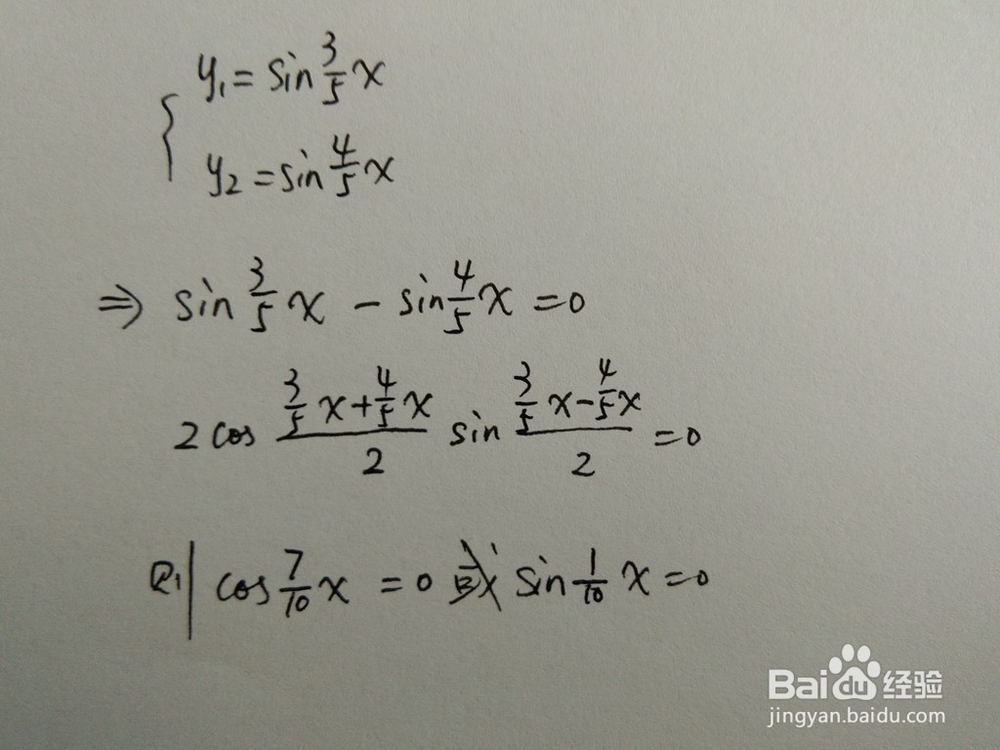 y₁=sin 3/5 x
y₂=sin 4/5 x
⇒ sin 3/5 x - sin 4/5 x =0
2 cos (3/5 x+4/5 x)/2 sin (3/5 x-4/5 x)/2 =0
则 cos 7/10 x =0 或 sin 1/10 x=0
Baidu经验
jingyan.baidu.com